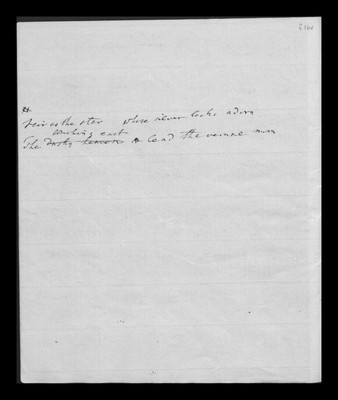 Fair as the star whose silver locks adorn
blushing east
The dusky heavens to lead the vernal morn